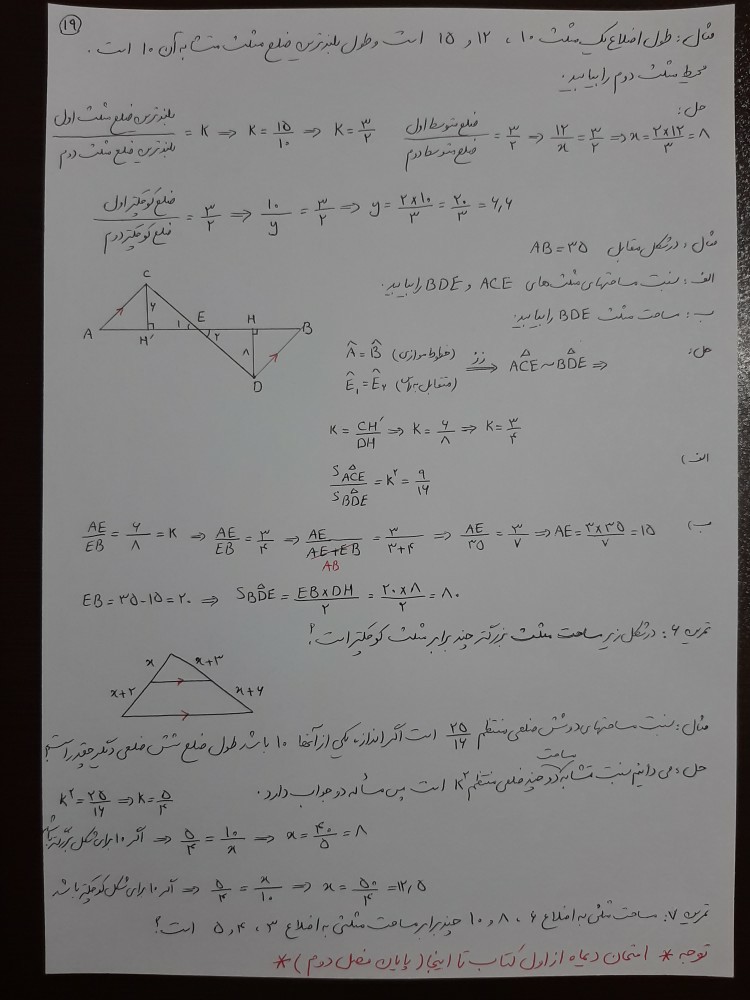 ۱۹
مثال: طول اضلاع یک مثلث ۱۰ ، ۱۲ و ۱۵ است و طول بلندترین ضلع مثلث متشابه آن ۱۰ است.
محیط مثلث دوم را بیابید.
حل:
بلندترین ضلع مثلث اول / بلندترین ضلع مثلث دوم = K ⇒ K = ۱۵/۱۰ ⇒ K = ۳/۲
ضلع متوسط اول / ضلع متوسط دوم = ۳/۲ ⇒ ۱۲/x = ۳/۲ ⇒ x = ۲×۱۲/۳ = ۸
ضلع کوچکتر اول / ضلع کوچکتر دوم = ۳/۲ ⇒ ۱۰/y = ۳/۲ ⇒ y = ۲×۱۰/۳ = ۲۰/۳ = ۶,۶
مثال: در شکل مقابل AB = ۳۵
الف: نسبت مساحتهای مثلث های ACE و BDE را بیابید.
ب: مساحت مثلث BDE را بیابید.
C
۶
A H' ۱ E ۲ H B
۸
D
حل:
Â = B̂ (خطوط موازی)
Ê₁ = Ê₂ (متقابل به رأس)
زز ⇒ ACE ~ BDE ⇒
K = CH'/DH ⇒ K = ۶/۸ ⇒ K = ۳/۴
الف)
S ACE / S BDE = K² = ۹/۱۶
ب)
AE/EB = ۶/۸ = K ⇒ AE/EB = ۳/۴ ⇒ AE/(AE+EB) = ۳/(۳+۴) ⇒ AE/۳۵ = ۳/۷ ⇒ AE = ۳×۳۵/۷ = ۱۵
AB
EB = ۳۵-۱۵ = ۲۰ ⇒ S BDE = EB×DH/۲ = ۲۰×۸/۲ = ۸۰
تمرین ۶: در شکل زیر مساحت مثلث بزرگتر چند برابر مثلث کوچکتر است؟
x x+۳
x+۲ x+۶
مثال: نسبت مساحتهای دو شش ضلعی منتظم ۲۵/۱۶ است اگر اندازه یکی از آنها ۱۰ باشد طول ضلع شش ضلعی دیگر چقدر است؟
حل: می دانیم نسبت تشابه مساحت دو چند ضلعی منتظم K² است پس مسأله دو جواب دارد.
K² = ۲۵/۱۶ ⇒ K = ۵/۴
اگر ۱۰ برای شکل بزرگتر باشد ⇒ ۵/۴ = ۱۰/x ⇒ x = ۴۰/۵ = ۸
اگر ۱۰ برای شکل کوچکتر باشد ⇒ ۵/۴ = x/۱۰ ⇒ x = ۵۰/۴ = ۱۲,۵
تمرین ۷: مساحت مثلثی به اضلاع ۶ ، ۸ و ۱۰ چند برابر مساحت مثلثی به اضلاع ۳ ، ۴ و ۵ است؟
توجه * امتحان دیماه از اول کتاب تا اینجا (پایان فصل دوم) *